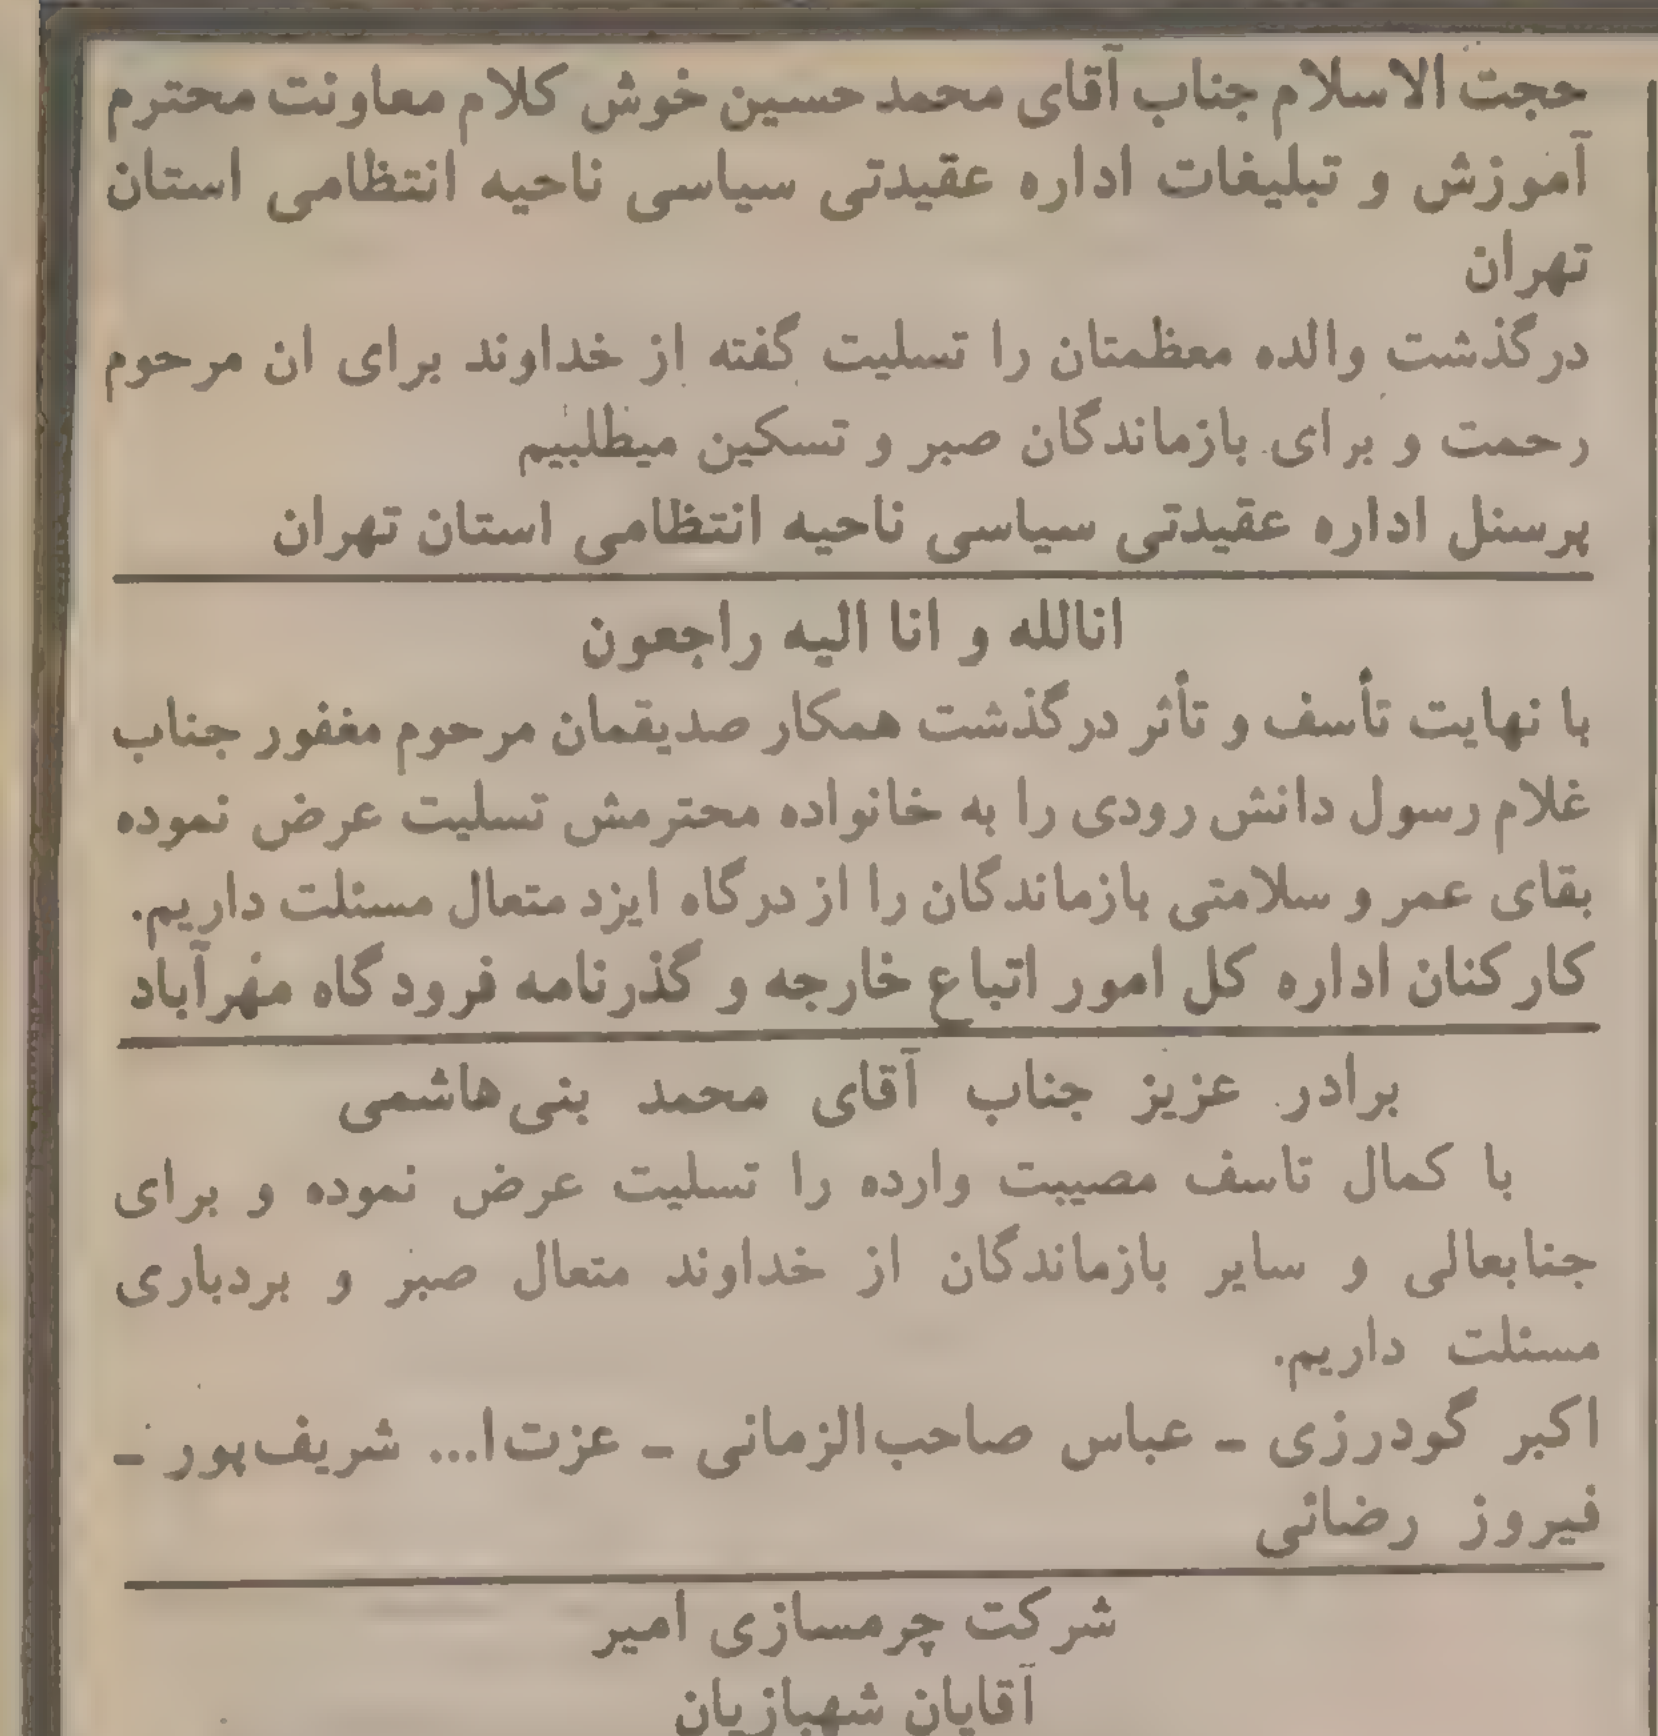 حجت الاسلام جناب آقای محمد حسین خوش کلام معاونت محترم
آموزش و تبلیغات اداره عقیدتی سیاسی ناحیه انتظامی استان
تهران
درگذشت والده معظمتان را تسلیت گفته از خداوند برای ان مرحوم
رحمت و برای بازماندگان صبر و تسکین میطلبیم
پرسنل اداره عقیدتی سیاسی ناحیه انتظامی استان تهران
انالله و انا الیه راجعون
با نهایت تأسف و تأثر درگذشت همکار صدیقمان مرحوم مغفور جناب
غلام رسول دانش رودی را به خانواده محترمش تسلیت عرض نموده
بقای عمر و سلامتی بازماندگان را از درگاه ایزد متعال مسئلت داریم.
کارکنان اداره کل امور اتباع خارجه و گذرنامه فرودگاه مهرآباد
برادر عزیز جناب آقای محمد بنی‌هاشمی
با کمال تاسف مصیبت وارده را تسلیت عرض نموده و برای
جنابعالی و سایر بازماندگان از خداوند متعال صبر و بردباری
مسئلت داریم.
اکبر گودرزی ـ عباس صاحب‌الزمانی ـ عزت‌ا... شریف‌پور ـ
فیروز رضائی
شرکت چرمسازی امیر
آقایان شهبازیان